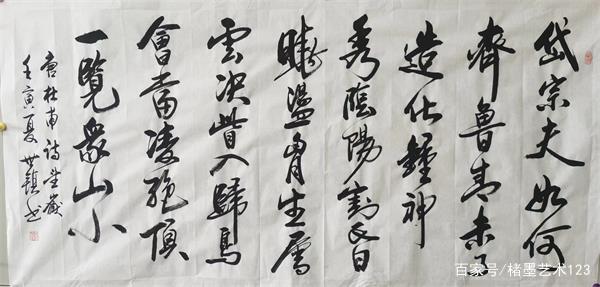 岱宗夫如何
齊魯青未了
造化鍾神
秀陰陽割昏
曉盪胷生層
雲決眥入歸鳥
會當凌絕頂
一覽衆山小
唐杜甫诗望嶽
壬寅夏世鎮书
百家号/楮墨艺术123